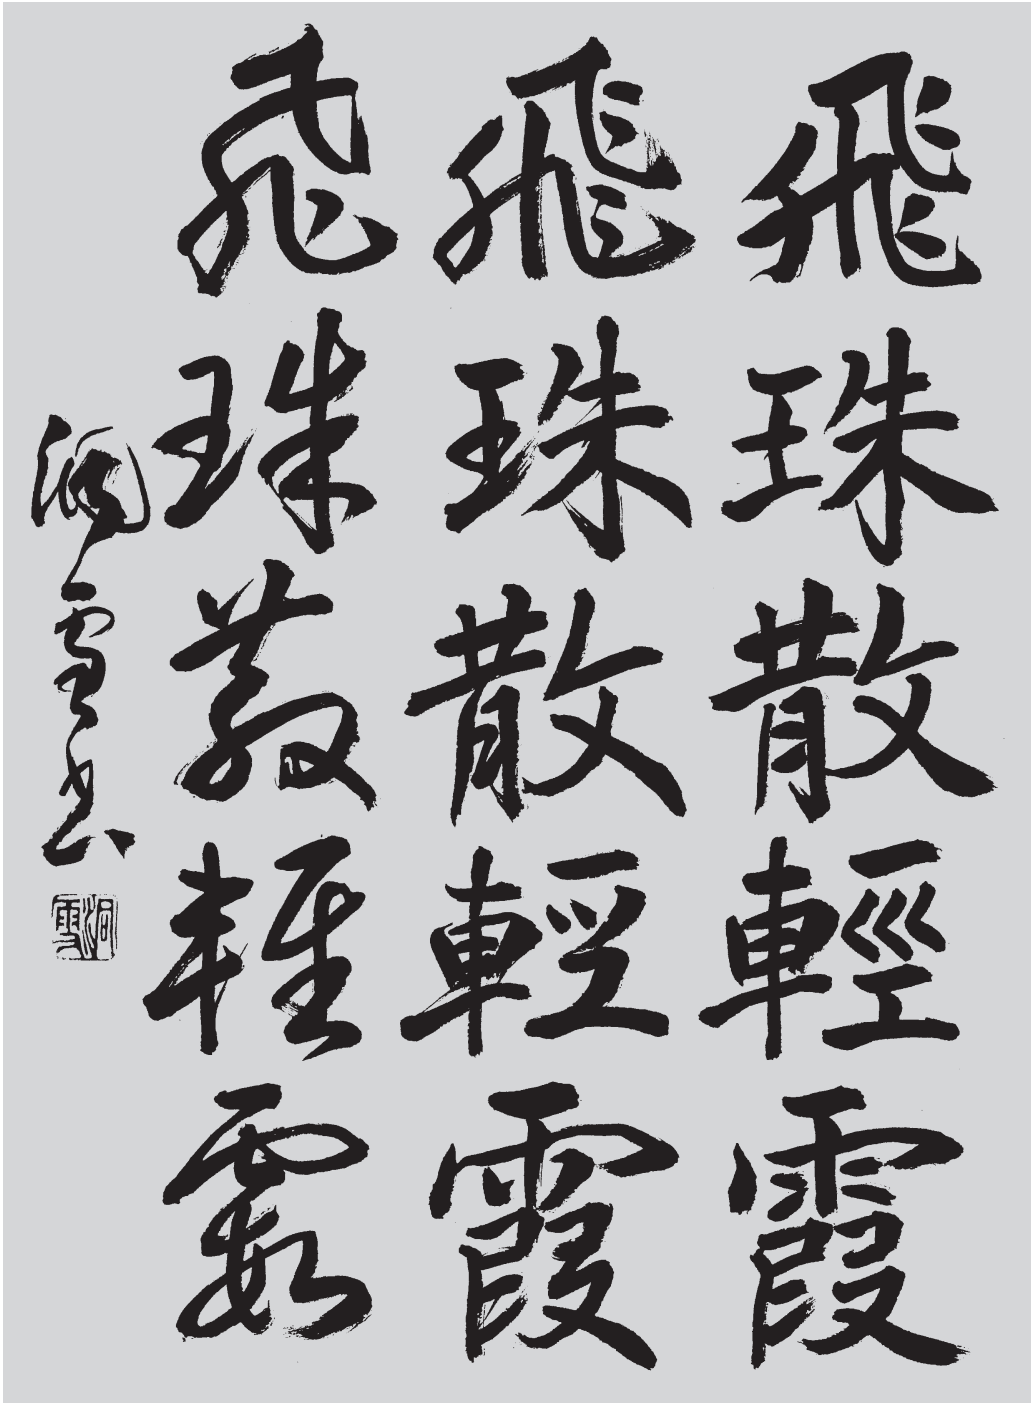 飛珠散輕霞
飛珠散輕霞
飛珠散輕霞
洞雪書
洞雪